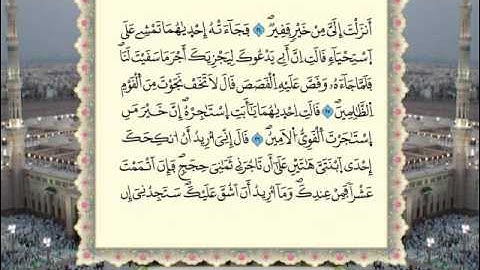 أَنزَلْتَ إِلَىَّ مِنْ خَيْرٍ فَقِيرٌ ۝ فَجَآءَتْهُ إِحْدَيٰهُمَا تَمْشِى عَلَى
ٱسْتِحْيَآءٍ قَالَتِ ٱِنَّ أَبِى يَدْعُوكَ لِيَجْزِيَكَ أَجْرَ مَا سَقَيْتَ لَنَا
فَلَمَّا جَآءَهُۥ وَقَصَّ عَلَيْهِ ٱلْقَصَصَ قَالَ لَا تَخَفْ نَجَوْتَ مِنَ ٱلْقَوْمِ
ٱلظَّٰلِمِينَ ۝ قَالَتِ ٱِحْدَيٰهُمَا يَٰٓأَبَتِ ٱِسْتَجِرْهُ إِنَّ خَيْرَ مَنِ
ٱِسْتَجَرْتَ ٱلْقَوِىُّ ٱلَامِينُ ۝ قَالَ إِنِّىَ أُرِيدُ أَنُ ا۟نكِحَكَ
إِحْدَى ٱبْنَتَىَّ هَٰتَيْنِ عَلَىٰٓ أَن تَاجُرَنِى ثَمَٰنِىَ حِجَجٍ فَإِنَ ٱتْمَمْتَ
عَشْرًا فَمِنْ عِندِكَ وَمَآ أُرِيدُ أَنَ ٱشُقَّ عَلَيْكَ سَتَجِدُنِىَ إِن